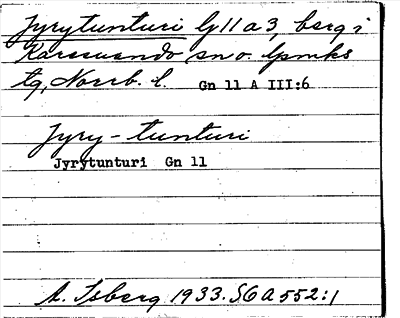 Jyrytunturi Gn 11 a 3, berg i
Karesuando sn o. lpmks
tg, Norrb. l. Gn 11 A III:6
Jyry-tunturi
Jyrytunturi Gn 11
A. Isberg 1933. SGA 552:1